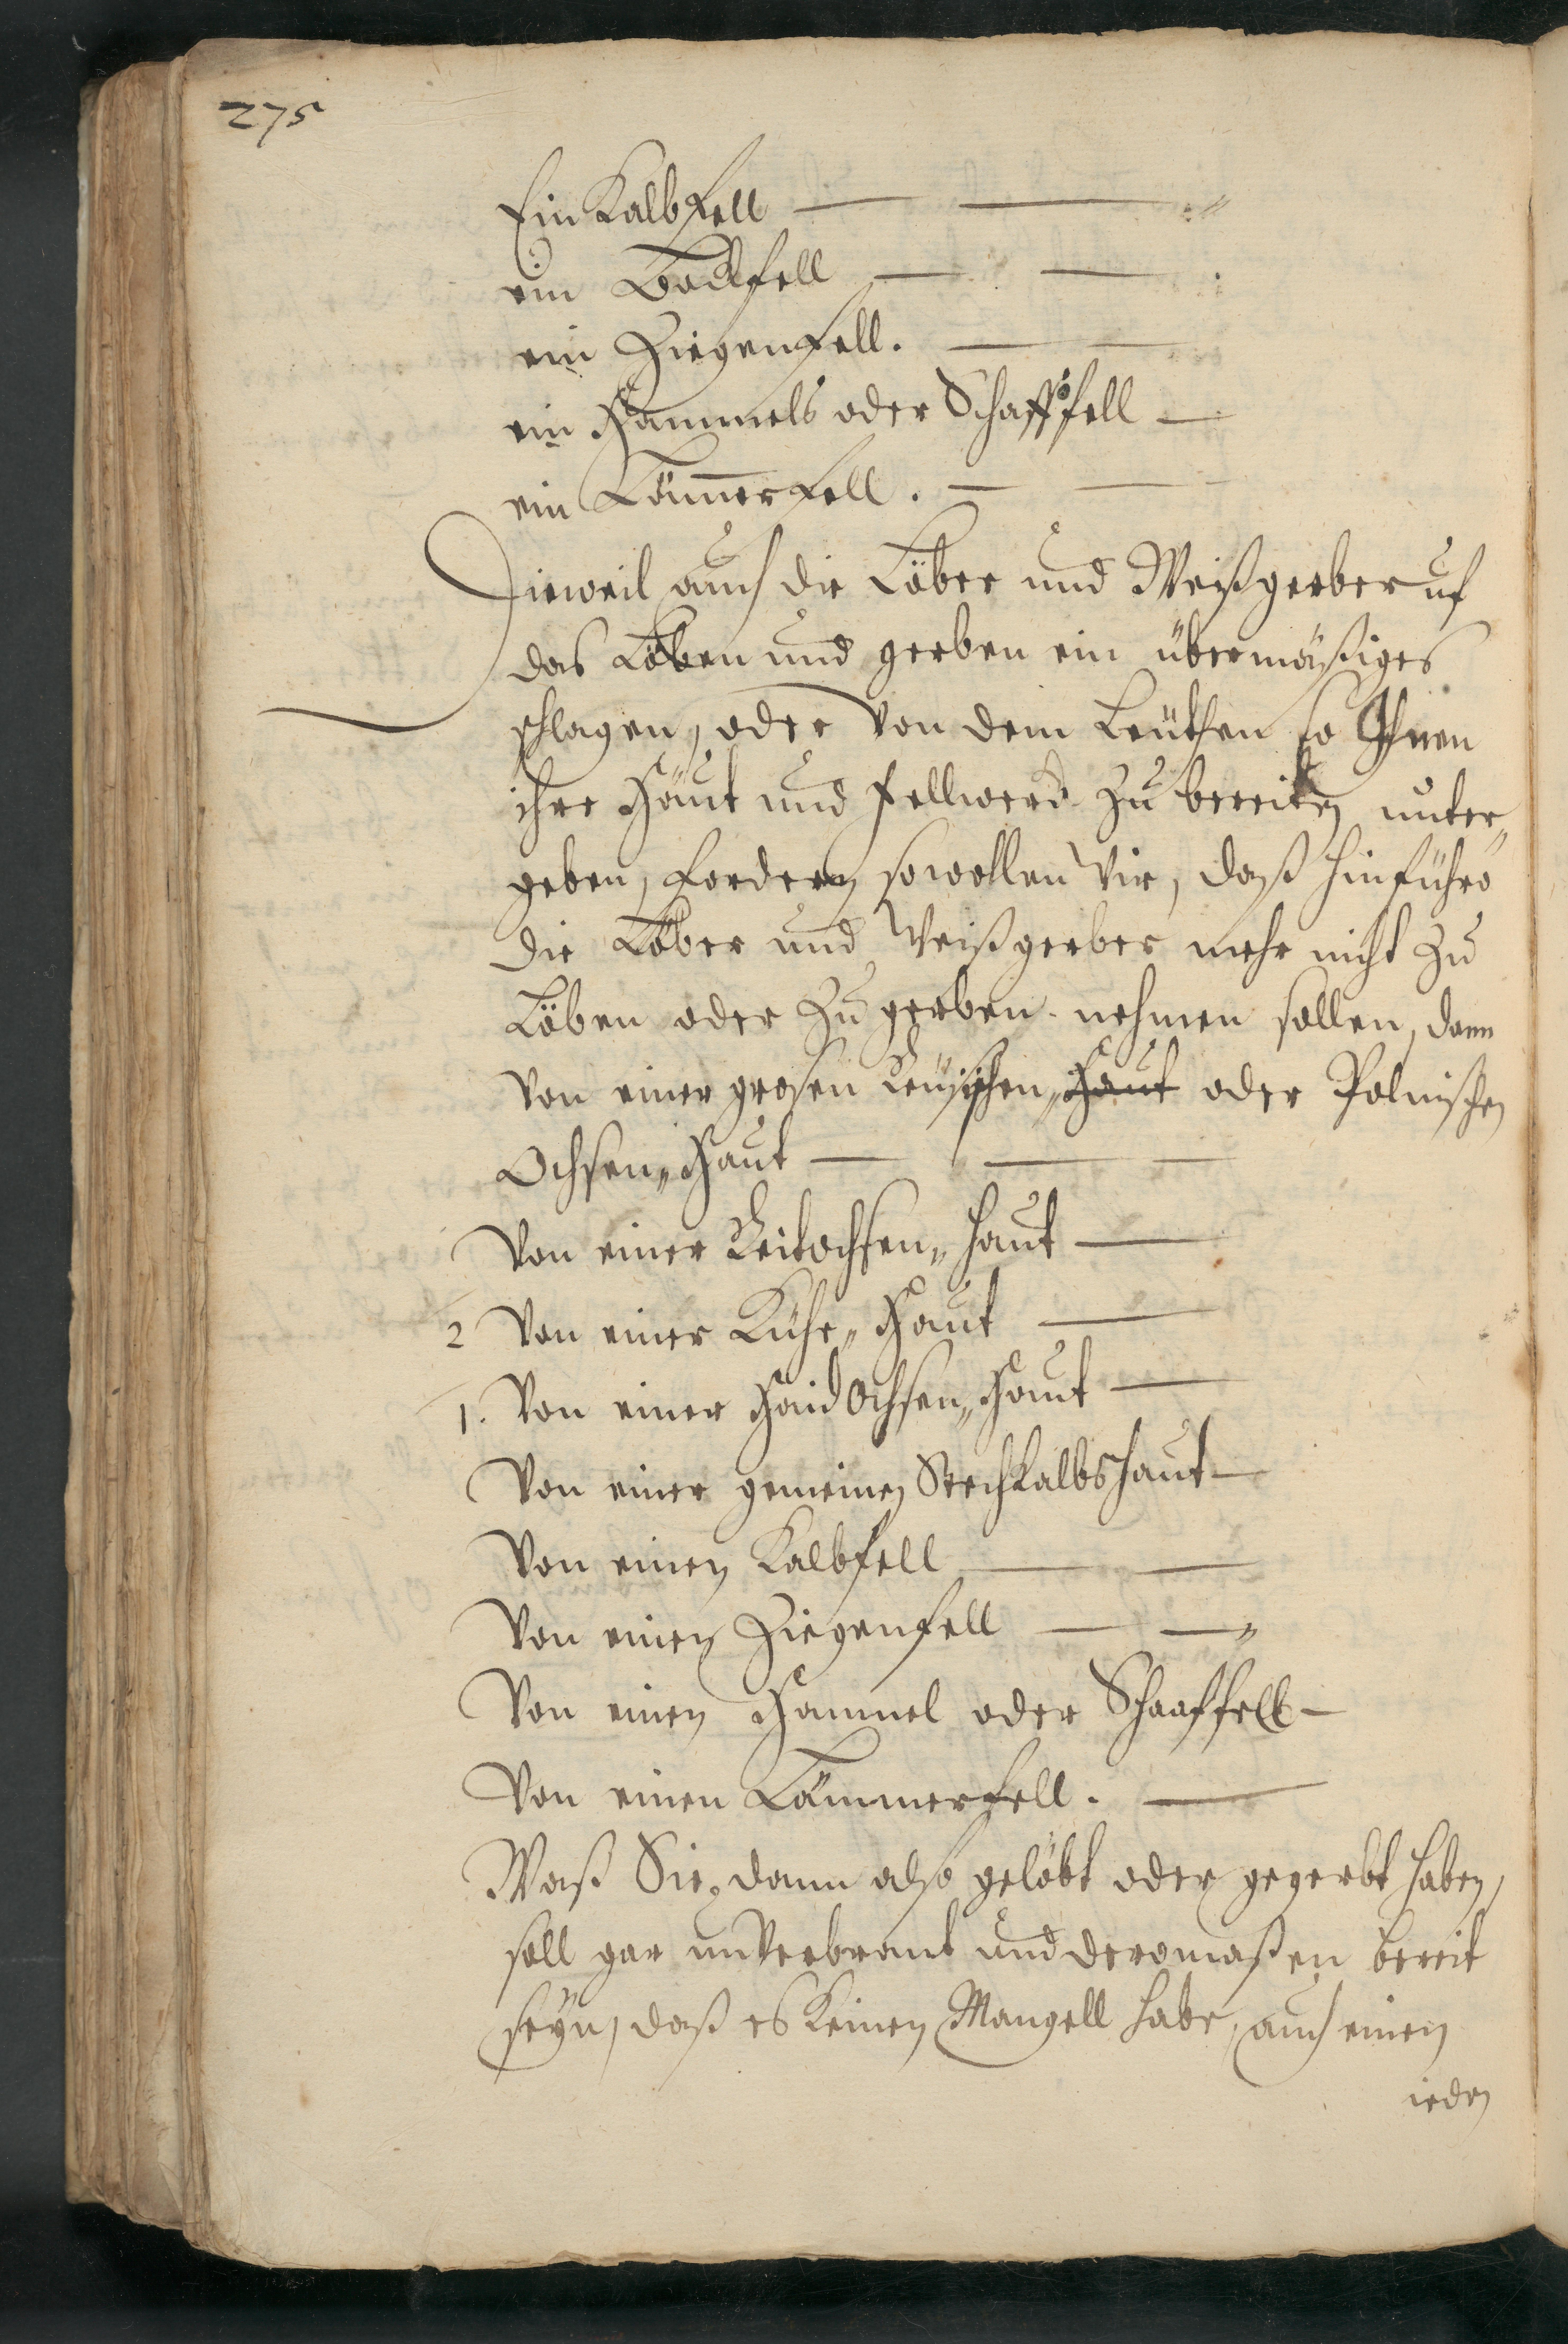 275
Ein Kalbfell — —
ein Bockfell — —
ein Ziegenfell. — —
ein Hammels oder Schaffsfell —
ein Lämerfell. — —
Dieweil auch die Löber und Weißgerber uf
das Löben und gerben ein übermäßiges
schlagen, oder von dem Leuthen so Ihnen
ihre Häut und fellwerck zu bereiten unter„
geben, fordern, so wollen Wir, daß hinführo
die Löber und Weißgerber mehr nicht zu
Löben oder zu gerben nehmen sollen, dann
Von einer grosen Reusischen„ Haut oder Polnischen
Ochsen„ Haut — —
Von einer Reitochsen„ haut —
2 Von einer Kuhe„ Haut —
1. Von einer Haid Ochsen„ Haut —
Von einer gemeinen Stechkalbshaut —
Von einen Kalbfell — —
Von einen Ziegenfell — —„
Von einen Hammel oder Schaaffell —
Von einen Lämmerfell. —
Waß Sie, dann also gelöbt oder gegerbt haben,
soll gar unverbrant und deromaßen bereit
seyn, daß es keinen Mangell habe, auch einen
ieden